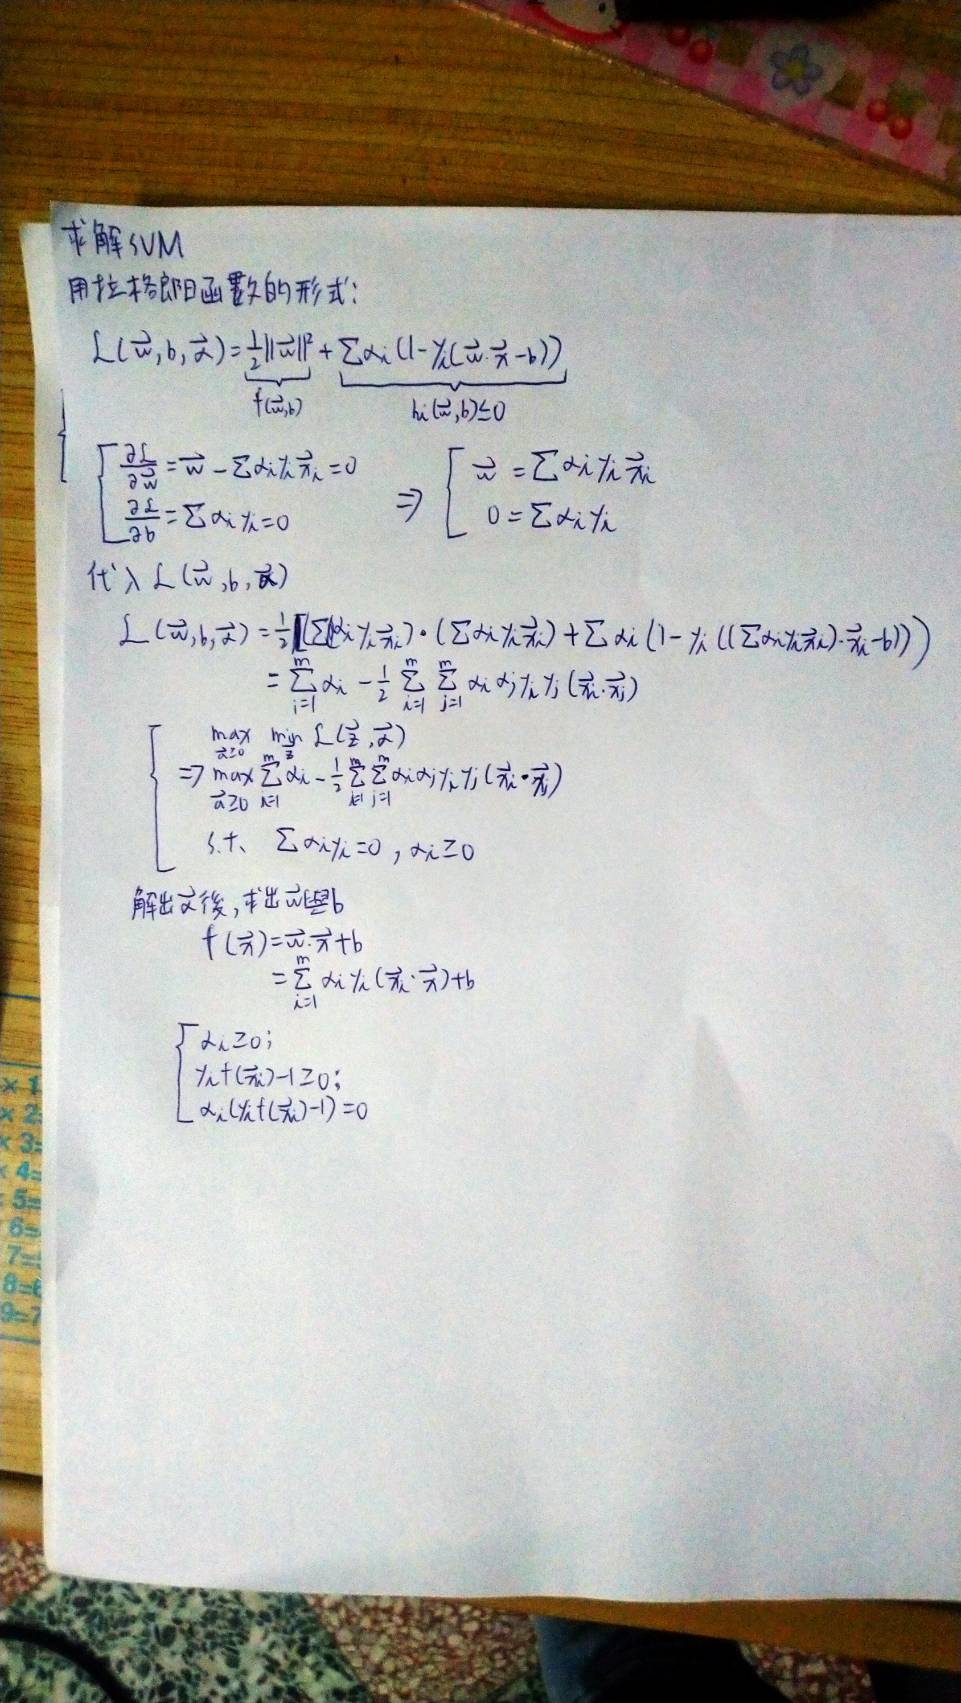 求解SVM
用拉格郎日函數的形式:
L(w⃗,b,α⃗)=½||w⃗||²+Σαi(1-yi(w⃗·x⃗-b))
f(w⃗,b) hi(w⃗,b)≤0
∂L/∂w⃗=w⃗-Σαiyix⃗i=0 ⇒ w⃗=Σαiyix⃗i
∂L/∂b=Σαiyi=0 0=Σαiyi
代入L(w⃗,b,α⃗)
L(w⃗,b,α⃗)=½[(Σ(αiyix⃗i)·(Σαiyix⃗i)+Σαi(1-yi((Σαiyix⃗i)·x⃗i-b)))
=Σ_{i=1}^{m}αi-½Σ_{i=1}^{m}Σ_{j=1}^{m}αiαjyiyj(x⃗i·x⃗j)
max_{α⃗≥0} min_{z⃗} L(z⃗,α⃗)
⇒max_{α⃗≥0}Σ_{i=1}^{m}αi-½Σ_{i=1}^{m}Σ_{j=1}^{m}αiαjyiyj(x⃗i·x⃗j)
s.t. Σαiyi=0, αi≥0
解出α⃗後,求出w⃗與b
f(x⃗)=w⃗·x⃗+b
=Σ_{i=1}^{m}αiyi(x⃗i·x⃗)+b
αi≥0;
yif(x⃗i)-1≥0;
αi(yif(x⃗i)-1)=0
× 1
× 2=
× 3=
× 4=
5=
6=
7=
8=6
9=7